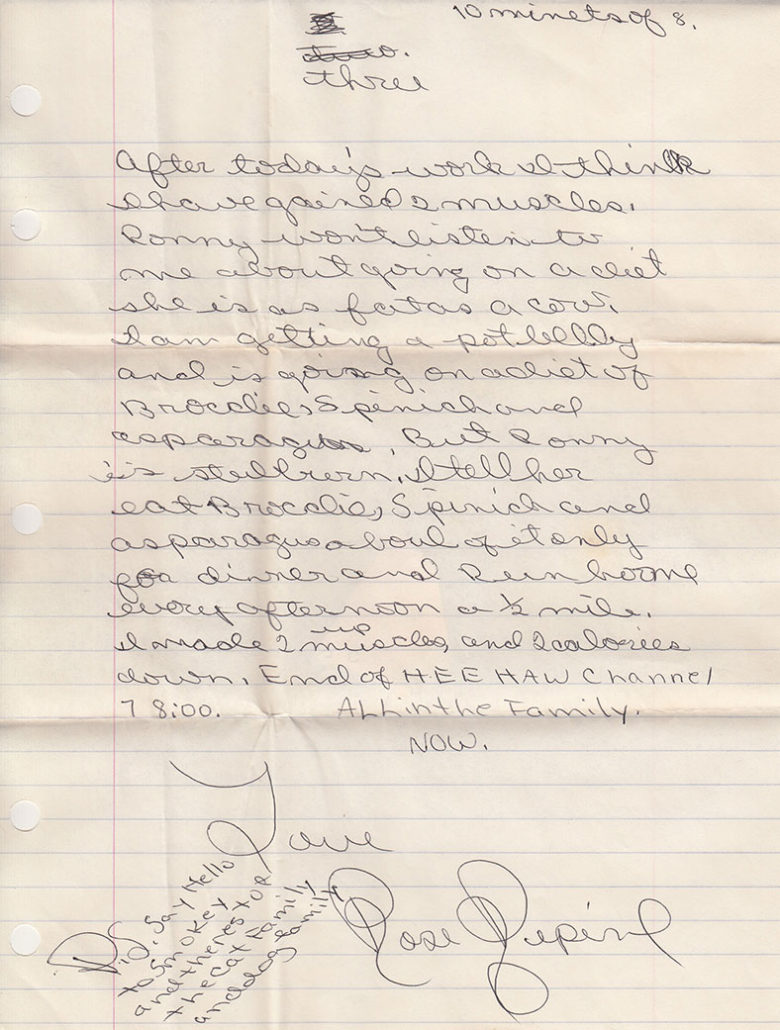 10 minets of 8.
two.
three
After today's work I think
I have gained 2 muscles.
Ronny won't listen to
me about going on a diet
she is as fat as a cow.
I am getting a potbellby
and is going on a diet of
Brocolie, Spinich and
asparagus, But Ronny
is stulbrern. I tell her
eat Brocolie, Spinich and
asparagus a boul of it only
for dinner and Run home
every afternoon a ½ mile.
I made 2 muscles up and 2 calories
down. End of HEE HAW Channel
7 8:00. ALL in the Family.
NOW.
Love
Rose
P.S. Say Hello
to Smokey
and the rest of
the Cat Family
and dog family